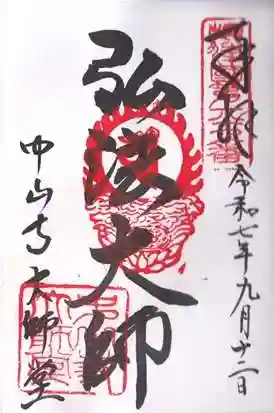 奉拝
令和七年九月十二日
弘法大師
中山寺大師堂